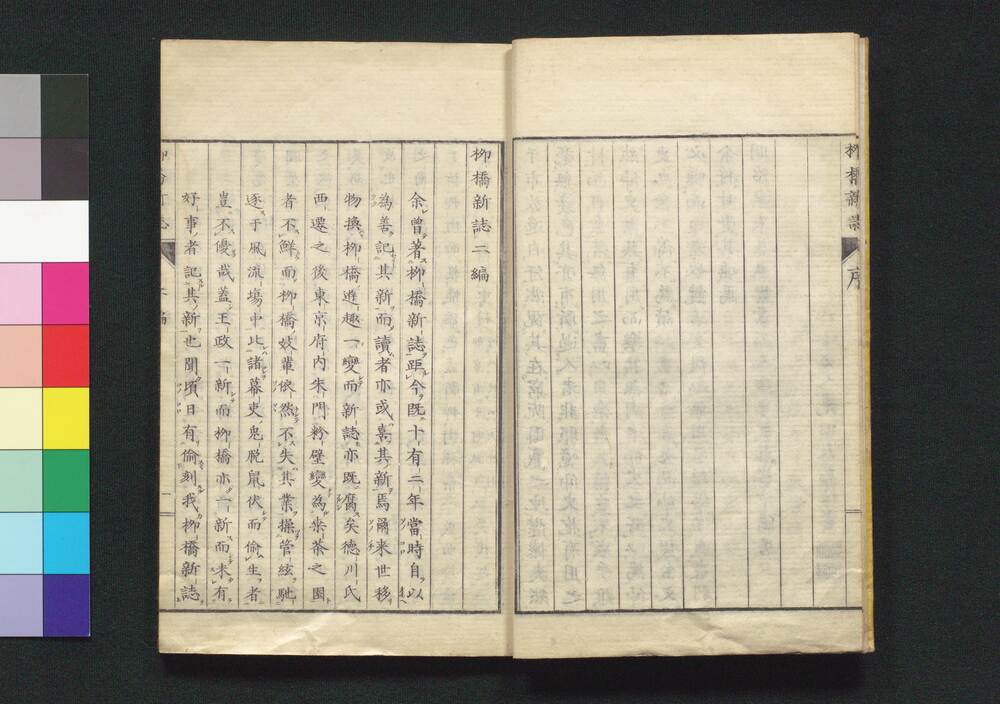 柳橋新誌
序
柳橋新誌二編
余曾著柳橋新誌距今既十有二年當時自以
為善記其新而讀者亦或喜其新焉爾来世移
物換柳橋遊趣一變而新誌亦既腐矣德川氏
西遷之後東京府内朱門粉壁變為桒茶之園
者不鮮而柳橋妓輩依然不失其業操管絃馳
逐于風流場中比諸幕吏兔脱鼠伏而偷生者
豈不優哉蓋王政一新而柳橋亦一新而未有
好事者記其新也聞頃日有偷刻我柳橋新誌